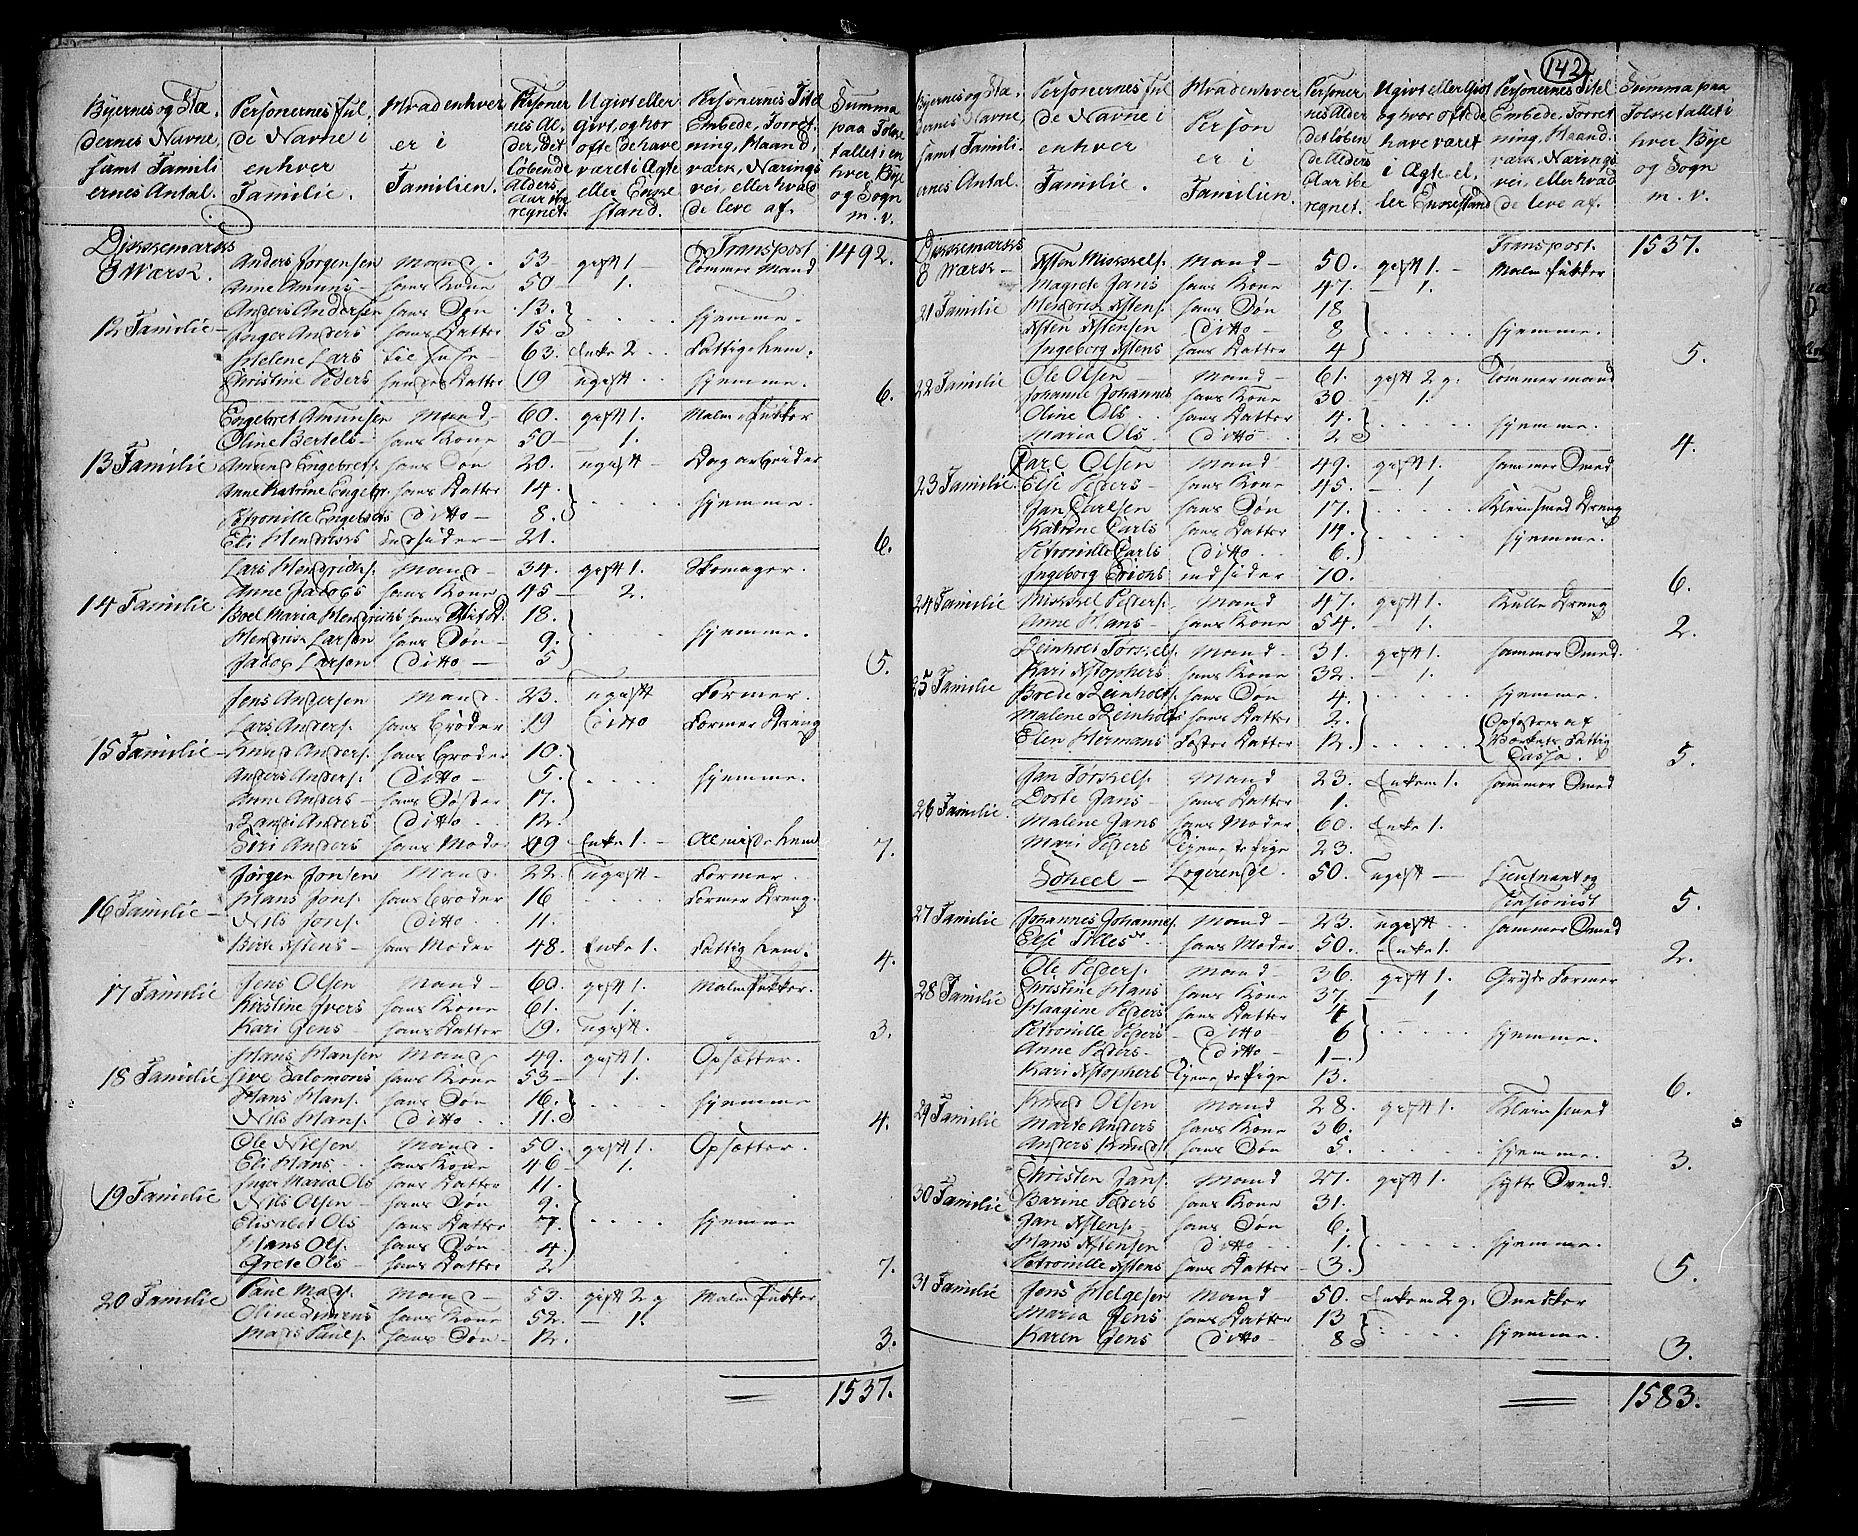 Byernes og Stæ
dernes Navne
samt Famili
ernes Antal.
Personernes ful
de Navne i
enhver
Familie.
Hvad enhver
er i
Familien.
Personer
nes Al-
der, det
løbende
Alders
Aar ibe
regnet.
Ugivt eller
Givt, og hvor
ofte de have
været i Ægte
eller Enke
stand.
Personernes Titel
Embede, Forret
ning, Haand
værk, Nærings
vei, eller hvad
de leve af.
Summa
paa Folke
tallet i en
hver Bye
og Sogn
m. v.
Transport 1492.
12 Familie Anders Jørgensen Mand 53 gift 1 Tømmer Mand
Anne Amuns hans Kone 50 1.
Anders Andersen hans Søn 13.
Inger Anders hans Datter 15 hjemme.
Helene Lars til huse 63. Enke 2 Fattig Lem.
Christine Peders hendes Datter 19 ugift hjemme. 6.
Engebret Amunsen Mand 60. gift 1. Malm Pukker
Oline Bertels hans Kone 50 1.
13 Familie Amund Engebrets. hans Søn 20. ugift Dagarbeider
Anne Katrine Engebr. hans Datter 14.
Petronille Engebrets ditto 8. hjemme.
Eli Hendriks indsider 21. 6.
Lars Hendriks. Mand 34. gift 1. Skomager.
Anne Jacobs hans Kone 45 2.
14 Familie Boel Maria Hendriks hans Stif D. 18.
Hendrik Larsen hans Søn 9. hjemme.
Jacob Larsen ditto 5 5.
Jens Andersen Mand 23. ugift Former.
Lars Anders. hans Broder 19 ditto Former Dreng
15 Familie Knud Anders. hans Broder 10.
Anders Anders. ditto 5. hjemme.
Anne Anders hans Søster 17.
Anders ditto 12.
Siri Anders hans Moder 49 Enke 1. Almisse Lem 7.
Jørgen Jonsen Mand 22. ugift Former.
Hans Jons. hans Broder 16 Former Dreng.
16 Familie Nils Jons. ditto 11.
Birte Astens hans Moder 48. Enke 1. Fattig Lem. 4.
Jens Olsen Mand 60. gift 1. Malm Pukker.
17 Familie Kirstine Ivers hans Kone 61. 1.
Kari Jens hans Datter 19. ugift. 3.
Hans Hansen Mand 49. gift 1. Opsætter.
18 Familie Live Salomons hans Kone 53 1.
Hans Hans. hans Søn 16. hjemme
Nils Hans. ditto 11. 4.
Ole Nilsen Mand 50. gift 1. Opsætter.
Eli Hans hans Kone 46 1.
Inger Maria Ols hans Datter 11.
19 Familie Nils Olsen hans Søn 9.
Elisabet Ols hans Datter 7. hjemme
Hans Ols. hans Søn 4.
Grete Ols hans Datter 2 7.
20 Familie Paul Mads. Mand 53. gift 2 g Malm Pukker
Oline hans Kone 52. 1.
Mads Pauls. hans Søn 12. 3.
1537.
142
Byernes og Stæ
dernes Navne,
samt Famili
ernes Antal.
Personernes ful
de Navne i
enhver
Familie.
Hvad enhver
Person
er i
Familien.
Personer
nes Alder
det løben
de Alders
Aar ibe
regnet.
Ugivt eller Givt
og hvor ofte de
have været
i Ægte el.
ler Enkestand
Personernes Titel
Embede, Forret
ning, Haand
værk, Nærings
vei, eller hvad
de leve af.
Summa paa
Folketallet i
hver Bye
og Sogn
m. v.
Transport. 1537.
Asten Mikkels. Mand 50. gift 1. Malm Pukker
Magrete Jans hans Kone 47. 1.
21 Familie Hendrik Astens. hans Søn 18
Asten Astensen ditto 8 hjemme.
Ingeborg Astens hans Datter 4 5.
22 Familie Ole Olsen Mand 61. gift 2 g. Tømmermand
Johanne Johannes hans Kone 30 1.
Oline Ols hans Datter 4. hjemme.
Maria Ols ditto 2 4.
Carl Olsen Mand 49. gift 1. Hammer Smed
23 Familie. Else Peders hans Kone 45. 1
Jan Carlsen hans Søn 17. Kleinsmed Dreng
Katrine Carls hans Datter 14. hjemme.
Petronille Carls ditto 6.
Ingeborg Erichs indsider 70. 6.
24 Familie Mikkel Peders. Mand 47. gift 1. Kulle Dreng
Anne Hans hans Kone 54. 1. 2.
Leinholt Torkels. Mand 31. gift 1. Hammer Smed.
25 Familie Kari Astophers hans Kone 32. 1.
Brede Leinholt. hans Søn 4. hjemme.
Malene Leinholts hans Datter 2.
Elen Hermans Foster Datter 12. Opfostres af
Værkets Fattig
Cassa. 5.
Jan Torkels. Mand 23. Enkem 1. Hammer Smed
26 Familie Dorte Jans hans Datter 1.
Malene Jans hans Moder 60. Enke 1.
Mari Peders Tjeneste Pige 23.
Logerende. 50. ugift Lieutnant og
Pensionist 5.
27 Familie Johannes Johannes. Mand 23. ugift Hammer Smed
Else hans Moder 50. Enke 1. 2.
Ole Peders. Mand 36. gift 1. Gryde Former
28 Familie Christine Hans hans Kone 37. 1
Maagine Peders hans Datter 4
Petronille Peders ditto 6 hjemme.
Anne Peders ditto 1
Kari Astophers Tjeneste Pige 13. 6.
Knud Olsen Mand 28. gift 1. Kleinsmed
29 Familie Marte Anders hans Kone 36.
Anders Knuds. hans Søn 5. hjemme. 3.
Christen Jans. Mand 27. gift 1. Hytte Svend.
30 Familie Barine Peders hans Kone 31.
Jan Astens. hans Søn 6.
Hans Astensen ditto 1. hjemme.
Petronille Astens hans Datter 3. 5.
31 Familie Jens Helgesen Mand 50. Enkem 2 g. Snedker
Maria Jens hans Datter 13
Karen Jens ditto 8 hjemme. 3.
1583.